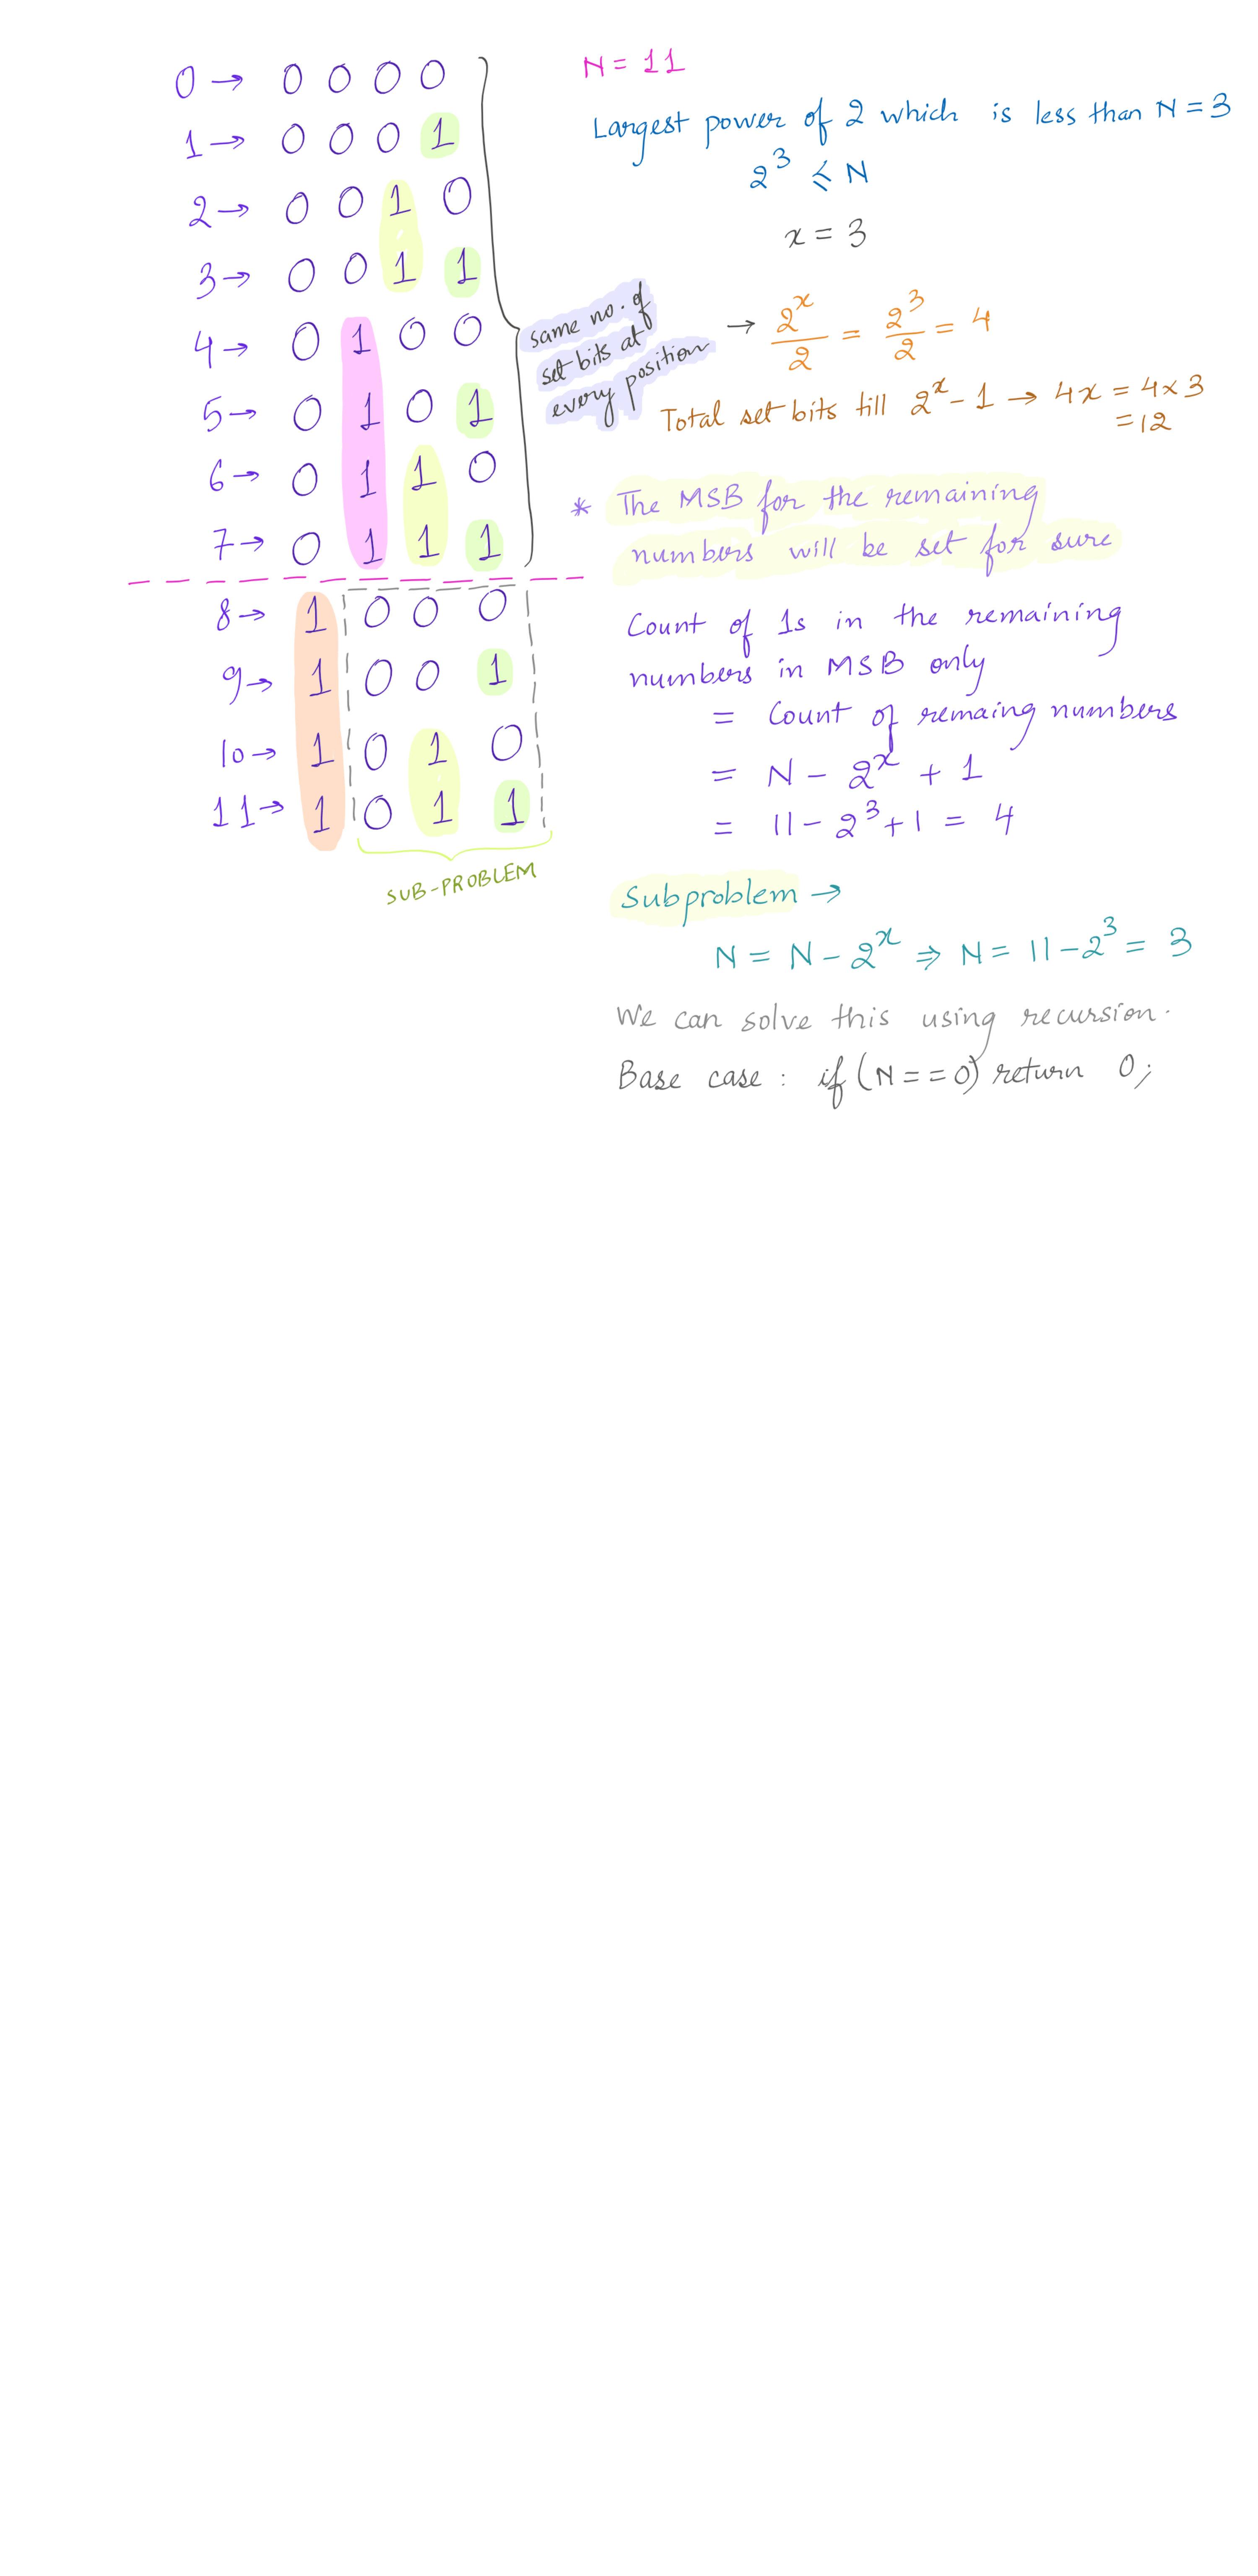 0 → 0 0 0 0
1 → 0 0 0 1
2 → 0 0 1 0
3 → 0 0 1 1
4 → 0 1 0 0
5 → 0 1 0 1
6 → 0 1 1 0
7 → 0 1 1 1
8 → 1 0 0 0
9 → 1 0 0 1
10 → 1 0 1 0
11 → 1 0 1 1
SUB-PROBLEM
same no. of
set bits at
every position
N = 11
Largest power of 2 which is less than N = 3
2^3 ≤ N
x = 3
→ 2^x/2 = 2^3/2 = 4
Total set bits till 2^x - 1 → 4x = 4 × 3
= 12
* The MSB for the remaining
numbers will be set for sure
Count of 1s in the remaining
numbers in MSB only
= Count of remaing numbers
= N - 2^x + 1
= 11 - 2^3 + 1 = 4
Subproblem →
N = N - 2^x ⇒ N = 11 - 2^3 = 3
We can solve this using recursion.
Base case : if (N == 0) return 0;